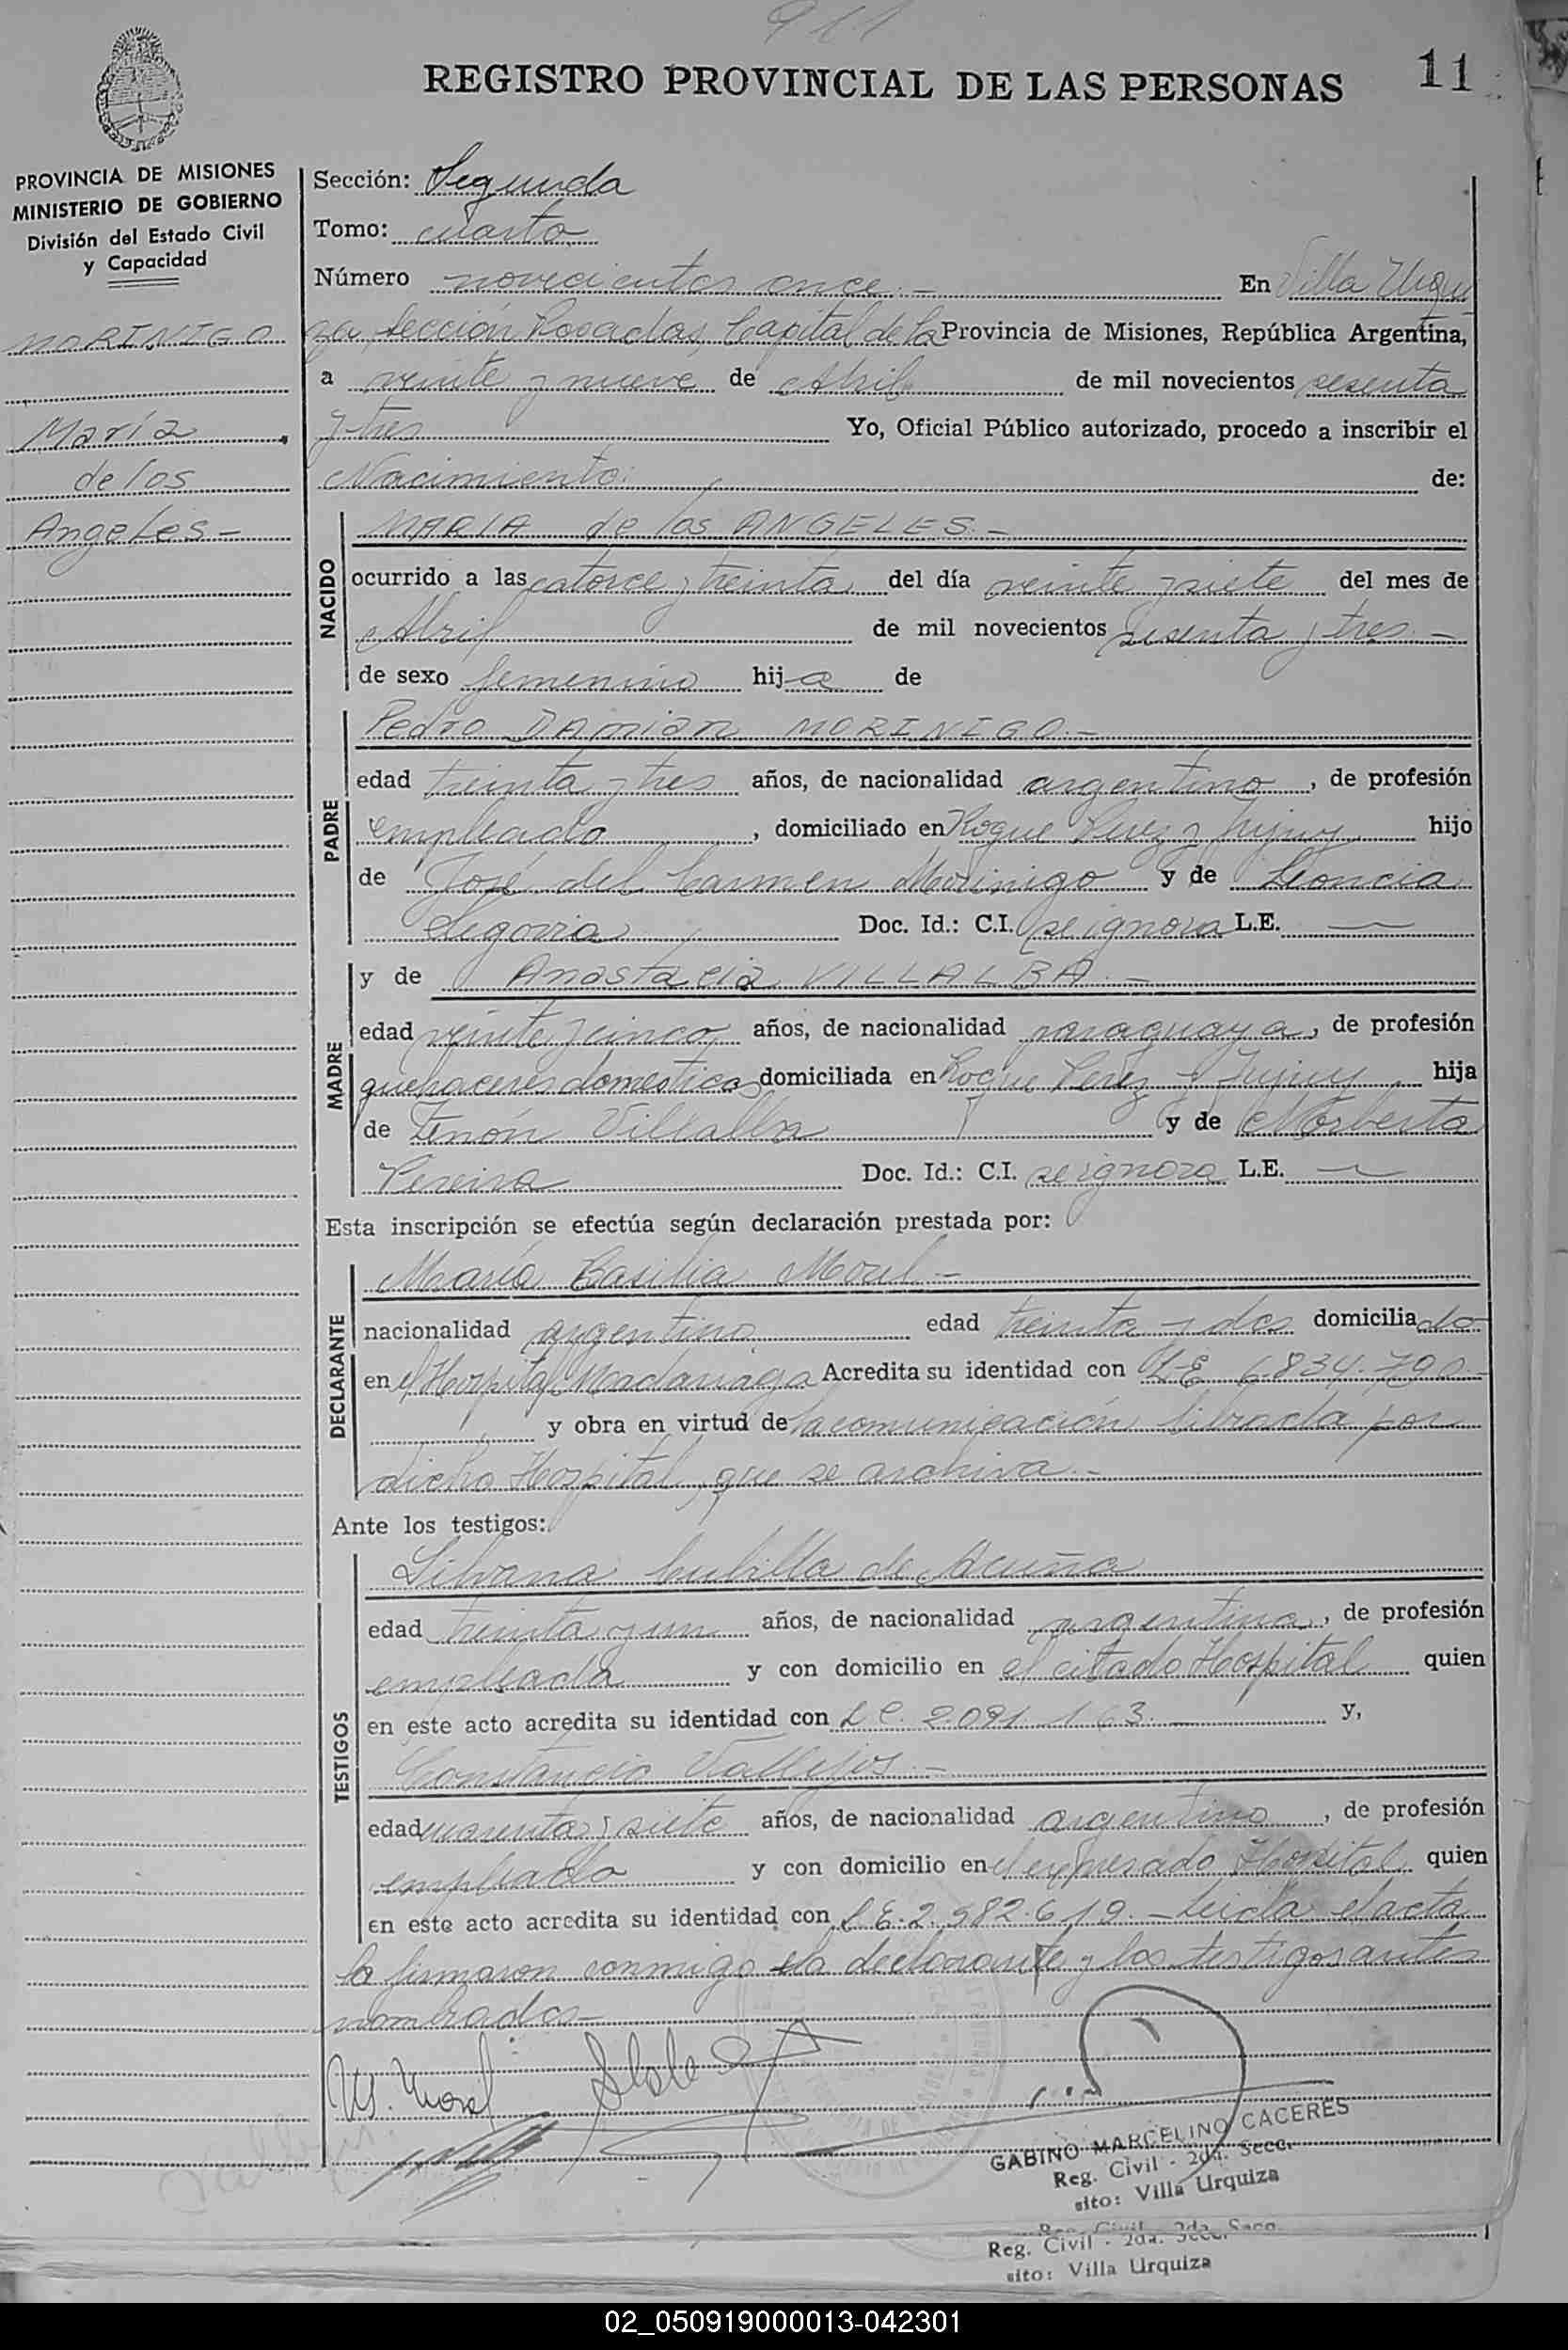 911
REGISTRO PROVINCIAL DE LAS PERSONAS 11
PROVINCIA DE MISIONES
MINISTERIO DE GOBIERNO
División del Estado Civil
y Capacidad
MORINIGO
María
de los
Angeles -
Sección: Segunda
Tomo: cuarto
Número novecientos once.- En Villa Urqui
za, Sección Posadas, Capital de la Provincia de Misiones, República Argentina,
a veinte y nueve de Abril de mil novecientos sesenta
y tres Yo, Oficial Público autorizado, procedo a inscribir el
Nacimiento: de:
NACIDO
MARIA de los ANGELES.-
ocurrido a las catorce y treinta del día veinte y siete del mes de
Abril de mil novecientos sesenta y tres.-
de sexo femenino hija de
PADRE
Pedro Damian MORINIGO.-
edad treinta y tres años, de nacionalidad argentino, de profesión
empleado, domiciliado en Roque Perez y Jujuy hijo
de José del Carmen Morinigo y de Leoncia
Segovia Doc. Id.: C.I. se ignora L.E. —
MADRE
y de Anastacia VILLALBA.-
edad veinte y cinco años, de nacionalidad paraguaya, de profesión
quehaceres domesticos domiciliada en Roque Perez y Jujuy, hija
de Zenón Villalba y de Norberta
Pereira Doc. Id.: C.I. se ignora L.E. —
Esta inscripción se efectúa según declaración prestada por:
DECLARANTE
María Basilia Morel -
nacionalidad argentina edad treinta y dos domiciliado
en el Hospital Madariaga Acredita su identidad con 6.834.790.-
y obra en virtud de la comunicación librada por
dicho Hospital, que se archiva.-
Ante los testigos:
TESTIGOS
Silvana Cubilla de Acuña
edad treinta y un años, de nacionalidad argentina, de profesión
empleada y con domicilio en el citado Hospital quien
en este acto acredita su identidad con L C. 2.091.163. y,
Constancio Vallejos.-
edad cuarenta y siete años, de nacionalidad argentino, de profesión
empleado y con domicilio en el expresado Hospital quien
en este acto acredita su identidad con L E. 2.582.619.- Leida el acta
la firmaron conmigo la declarante y los testigos antes
nombrados-
M. Morel
GABINO MARCELINO CACERES
Reg. Civil - 2da. Secc.
sito: Villa Urquiza
Reg. Civil - 2da. Secc.
Reg. Civil - 2da. Secc.
sito: Villa Urquiza
02_050919000013-042301